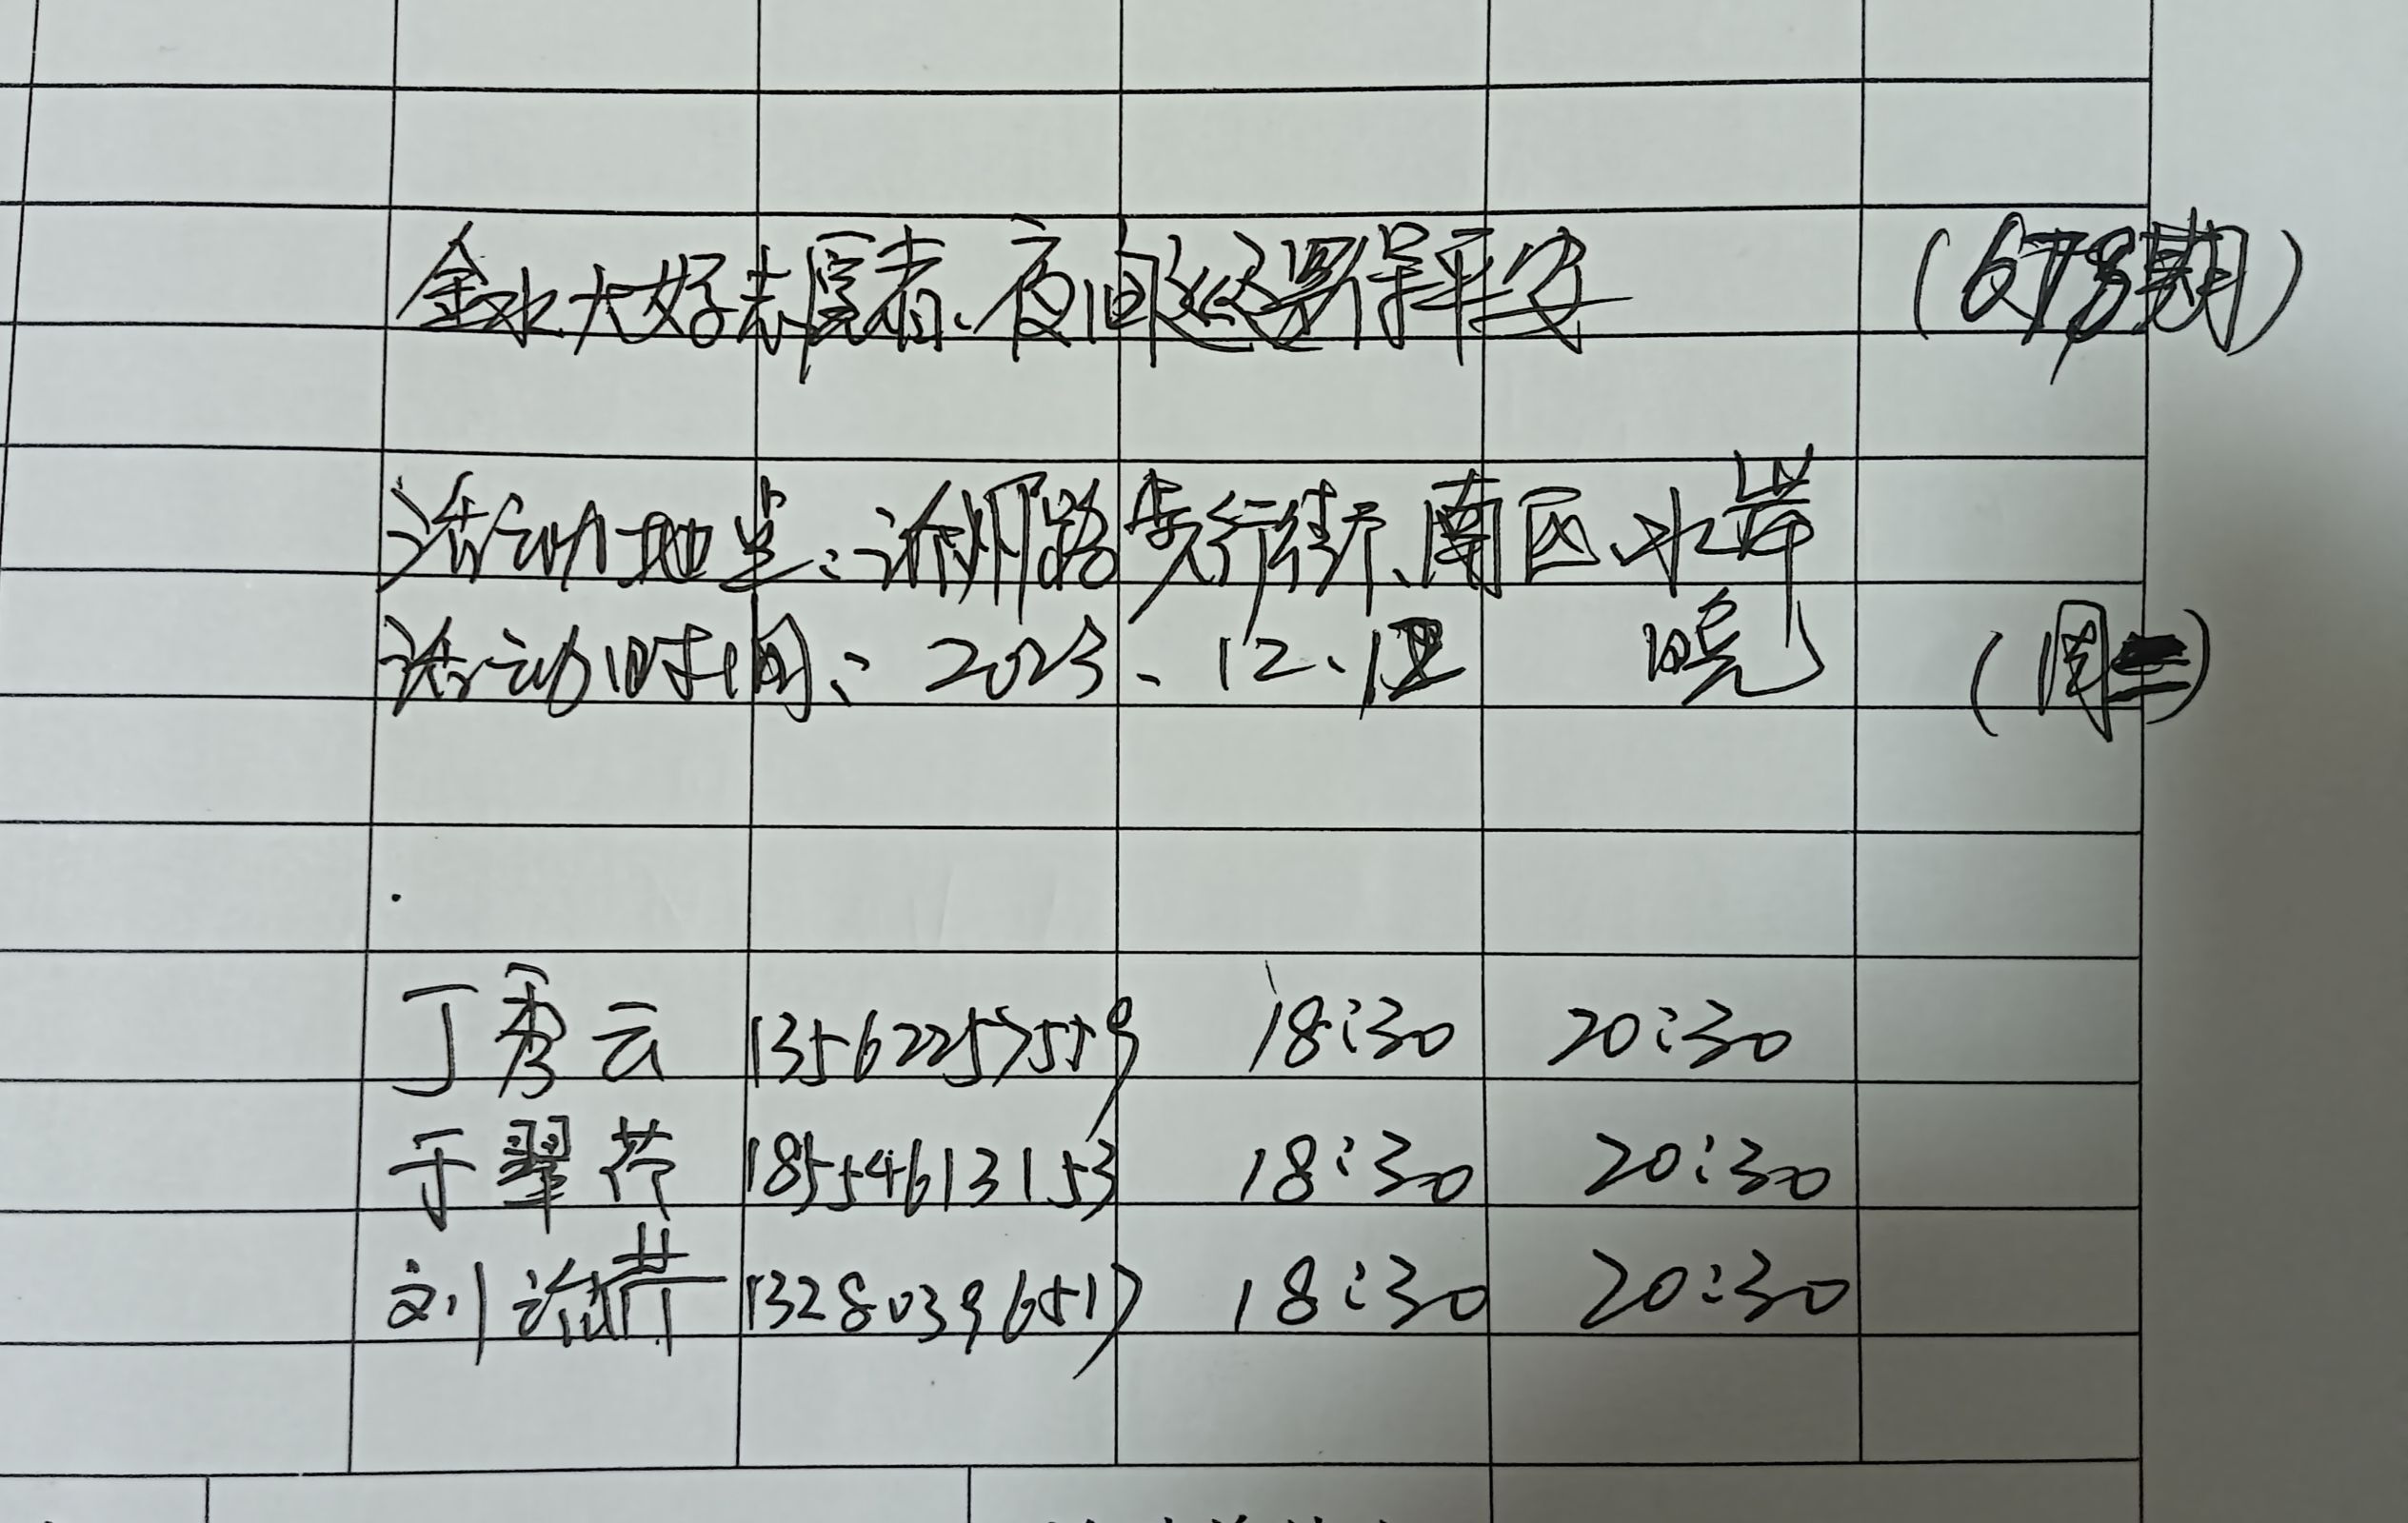 金水大好志愿者、夜间巡逻保平安 (678期)
活动地点:沂州路步行街、南区、水岸
活动时间: 2023、12、12 晚 (周二)
丁秀云 13562257559 18:30 20:30
于翠芹 18554613153 18:30 20:30
刘 13280396517 18:30 20:30